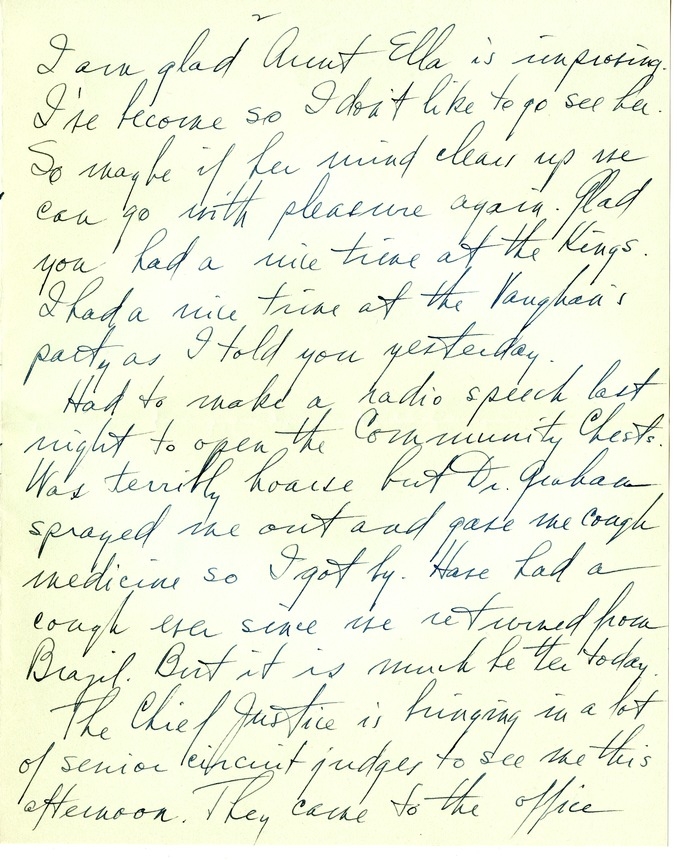 2
I am glad Aunt Ella is improving.
I've become so I don't like to go see her.
So maybe if her mind clears up we
can go with pleasure again. Glad
you had a nice time at the Kings.
I had a nice time at the Vaughan's
party as I told you yesterday.
Had to make a radio speech last
night to open the Community Chests.
Was terribly hoarse but Dr. Graham
sprayed me out and gave me cough
medicine so I got by. Have had a
cough ever since we returned from
Brazil. But it is much better today.
The Chief Justice is bringing in a lot
of senior circuit judges to see me this
afternoon. They came to the office